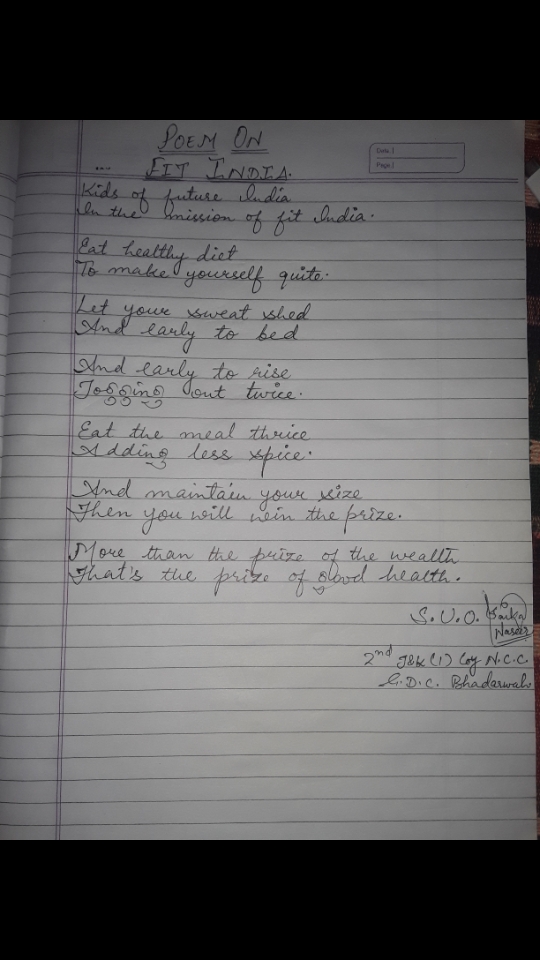 POEM ON
FIT INDIA.
Date |
Page |
Kids of future India
In the mission of fit India.
Eat healthy diet
To make yourself quite.
Let your sweat shed
And early to bed
And early to rise
Jogging out twice.
Eat the meal thrice
Adding less spice.
And maintain your size
Then you will win the prize.
More than the prize of the wealth
That's the prize of good health.
S.U.O.
Naseer
2nd J&K (I) Coy N.C.C.
G.D.C. Bhadarwah